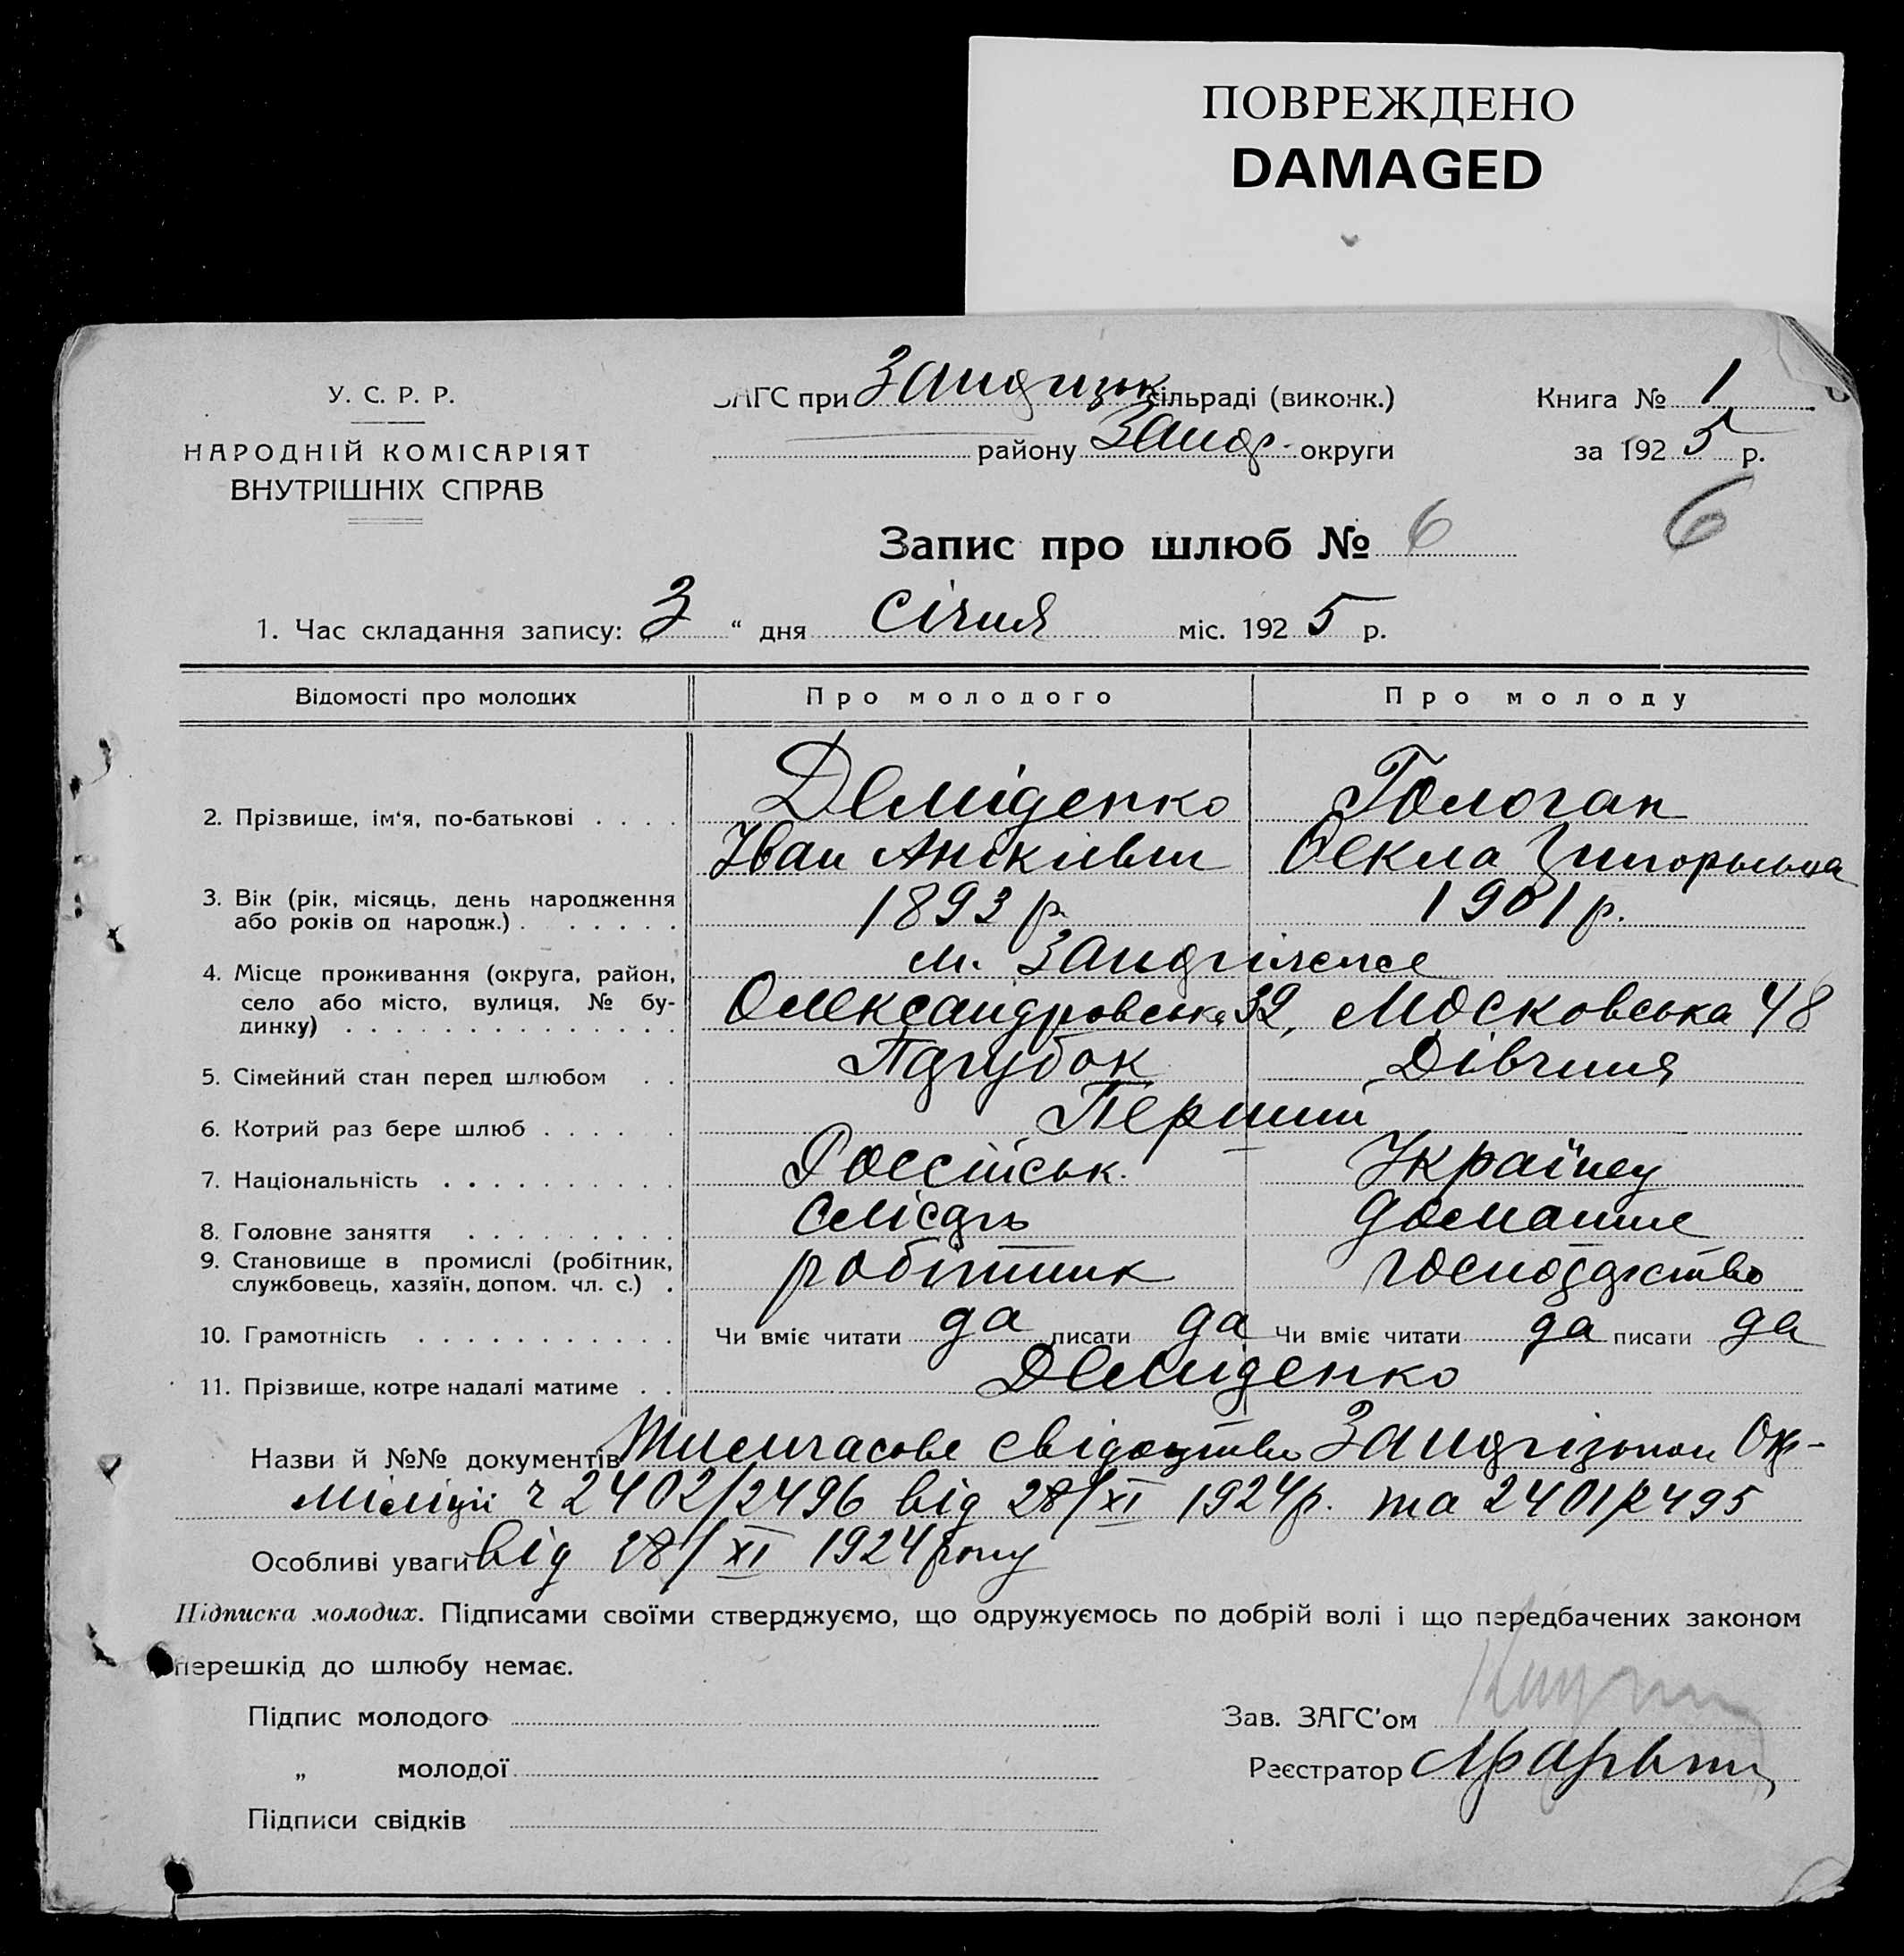 ПОВРЕЖДЕНО
DAMAGED
У. С. Р. Р.
НАРОДНІЙ КОМІСАРІЯТ
ВНУТРІШНІХ СПРАВ
ЗАГС при сільраді (виконк.)
району округи
Книга № 1
за 1925 р.
6
Запис про шлюб № 6
1. Час складання запису: „3“ дня Січня міс. 1925 р.
Відомості про молодих Про молодого Про молоду
2. Прізвище, ім'я, по-батькові Деміденко Гологан
Іван Текла
3. Вік (рік, місяць, день народження
або років од народж.) 1893 р. 1901 р.
4. Місце проживання (округа, район, м.
село або місто, вулиця, № бу-
динку) Олександровська 32, Московська 48
5. Сімейний стан перед шлюбом Парубок Дівчиня
6. Котрий раз бере шлюб Перший
7. Національність Россійськ. Україну
8. Головне заняття Слісарь домашнє
9. Становище в промислі (робітник,
службовець, хазяїн, допом. чл. с.) робітник господарство
10. Грамотність Чи вміє читати да писати да Чи вміє читати да писати да
11. Прізвище, котре надалі матиме Деміденко
Назви й №№ документів Тимчасове свідоцтво Окр-
міліції ч 2402/2496 від 28/XI 1924 р. та 2401/2495
Особливі уваги від 28/XI 1924 року
Підписка молодих. Підписами своїми стверджуємо, що одружуємось по добрій волі і що передбачених законом
перешкід до шлюбу немає.
Підпис молодого Зав. ЗАГС'ом
„ молодої Реєстратор
Підписи свідків